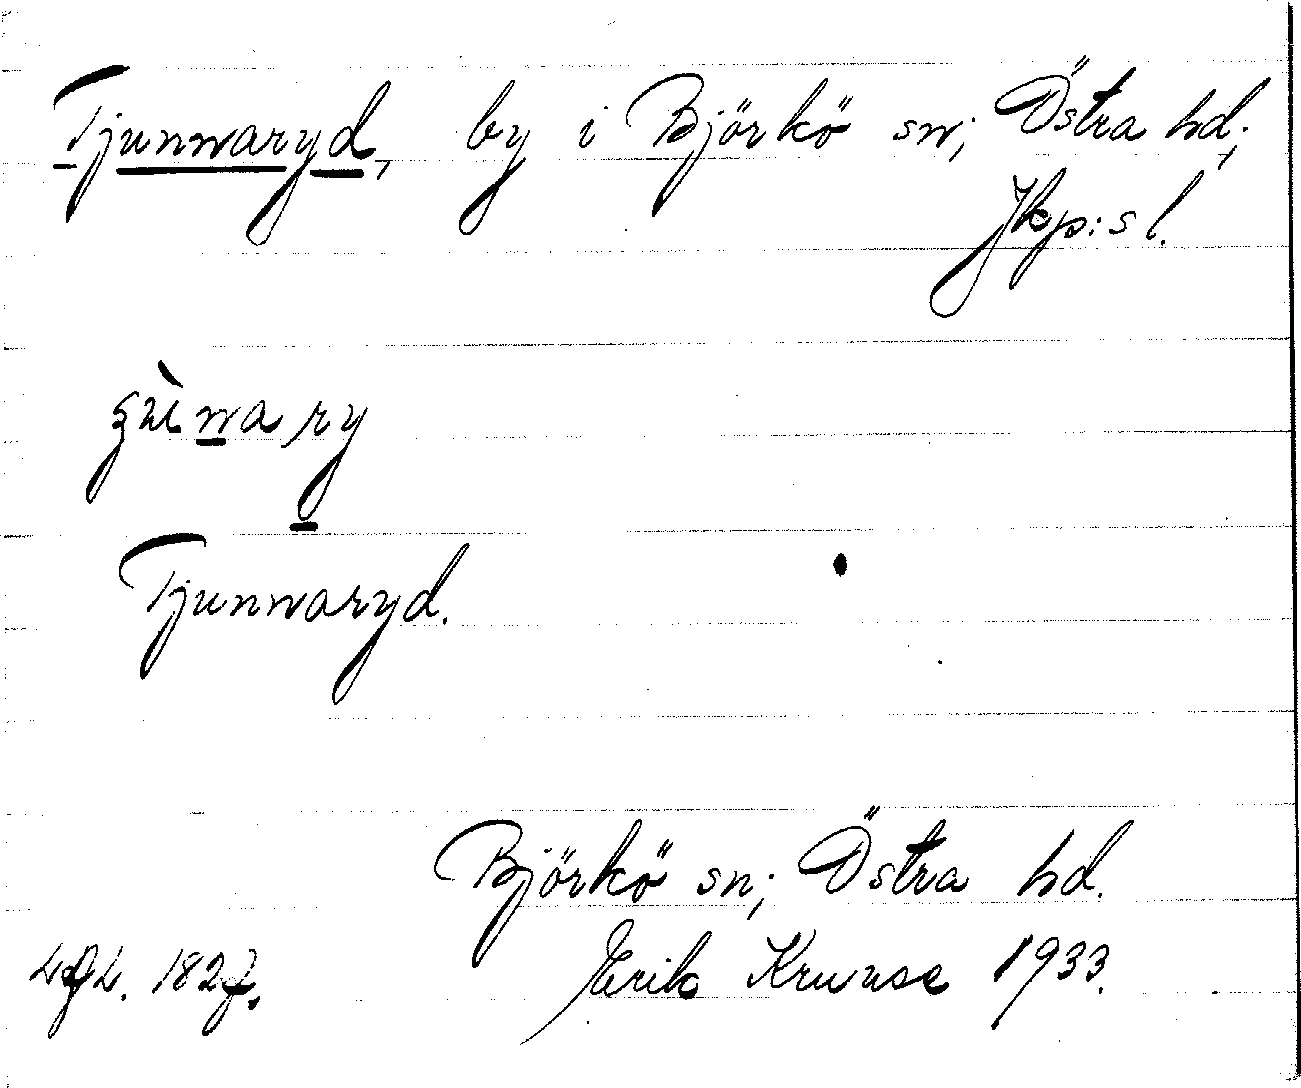 Tjunnaryd, by i Björkö sn; Östra hd;
Jkp:s l.
Tjunnaryd.
Björkö sn; Östra hd.
1827. Erik Kruuse 1933.